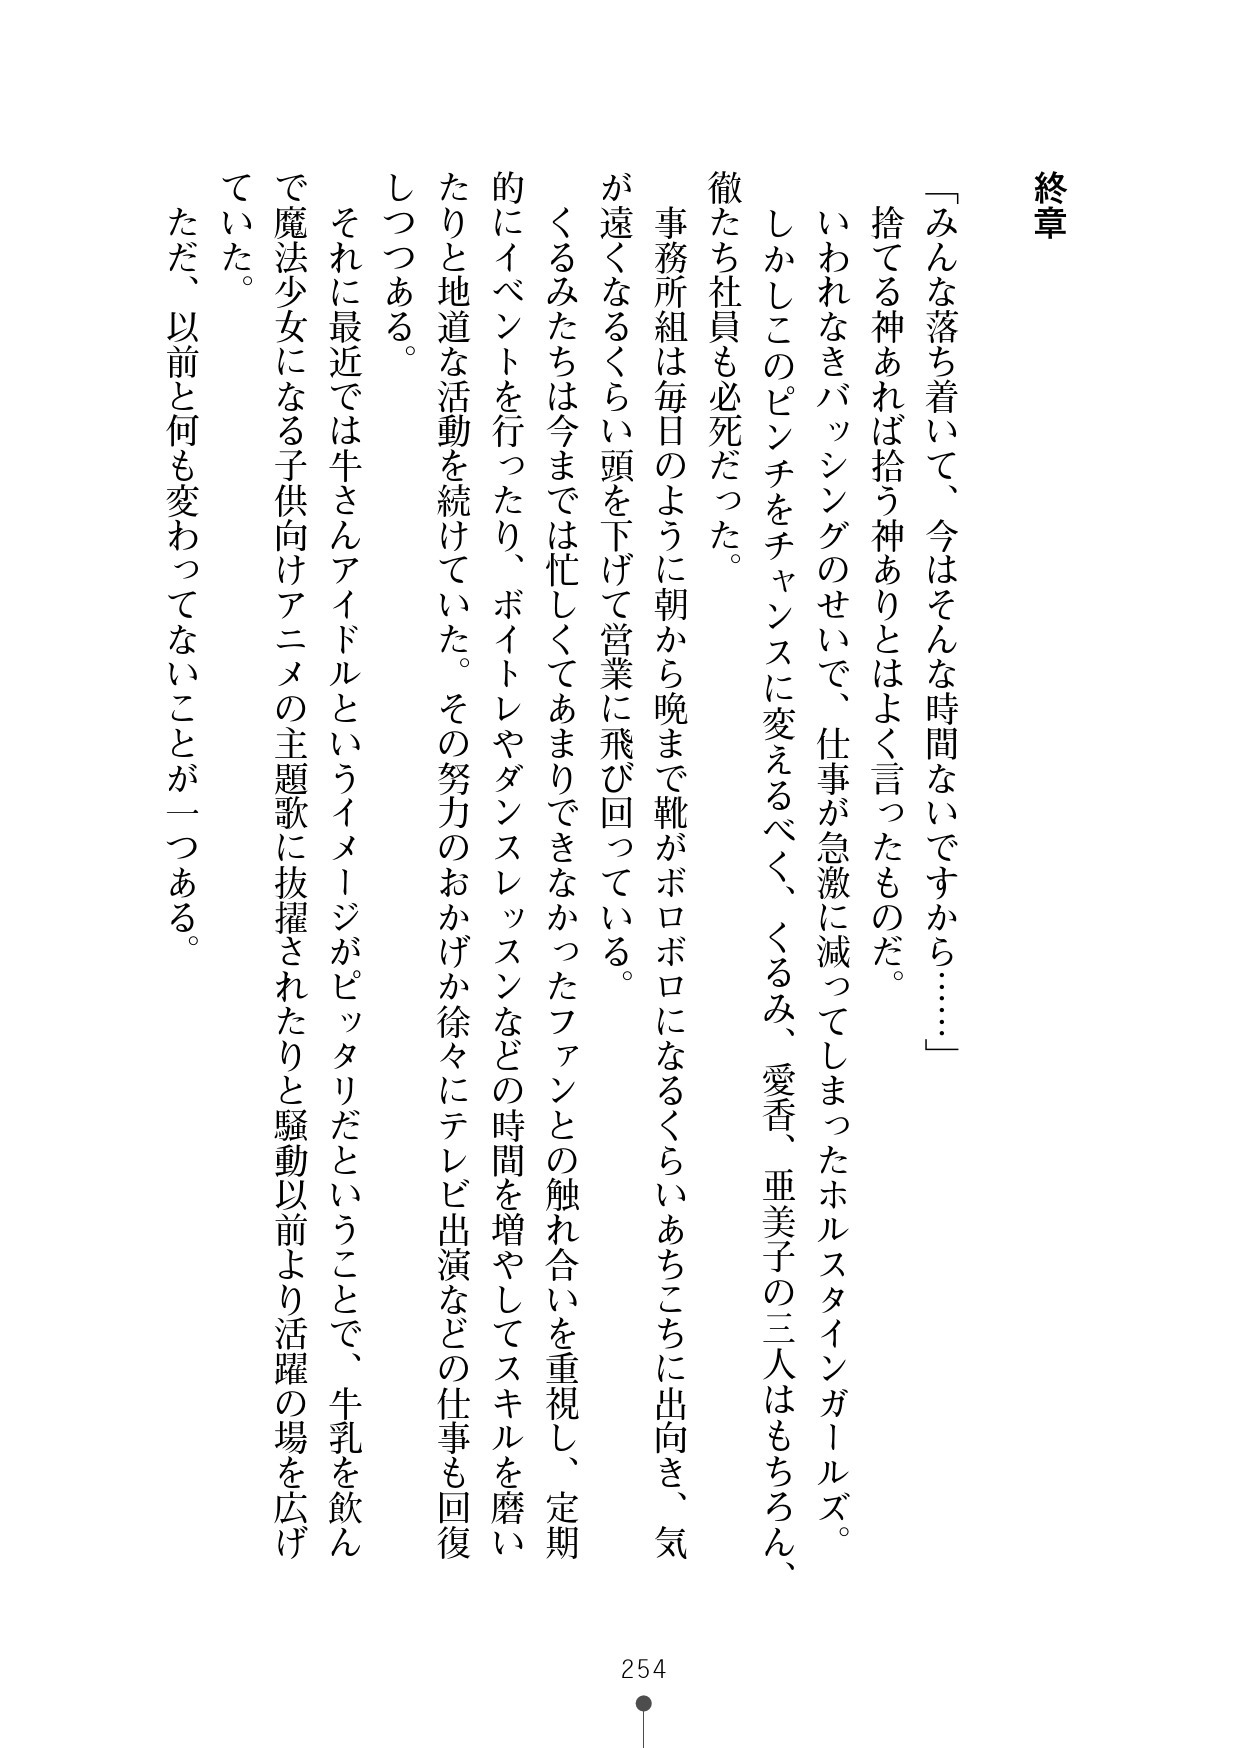 終章
「みんな落ち着いて、今はそんな時間ないですから……」
捨てる神あれば拾う神ありとはよく言ったものだ。
いわれなきバッシングのせいで、仕事が急激に減ってしまったホルスタインガールズ。
しかしこのピンチをチャンスに変えるべく、くるみ、愛香、亜美子の三人はもちろん、
徹たち社員も必死だった。
事務所組は毎日のように朝から晩まで靴がボロボロになるくらいあちこちに出向き、気
が遠くなるくらい頭を下げて営業に飛び回っている。
くるみたちは今までは忙しくてあまりできなかったファンとの触れ合いを重視し、定期
的にイベントを行ったり、ボイトレやダンスレッスンなどの時間を増やしてスキルを磨い
たりと地道な活動を続けていた。その努力のおかげか徐々にテレビ出演などの仕事も回復
しつつある。
それに最近では牛さんアイドルというイメージがピッタリだということで、牛乳を飲ん
で魔法少女になる子供向けアニメの主題歌に抜擢されたりと騒動以前より活躍の場を広げ
ていた。
ただ、以前と何も変わってないことが一つある。
254